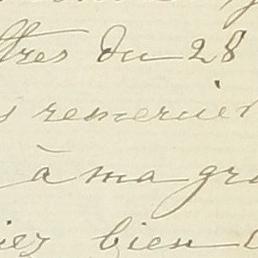 ttres du 28
s remercier
à ma gra
iez bien